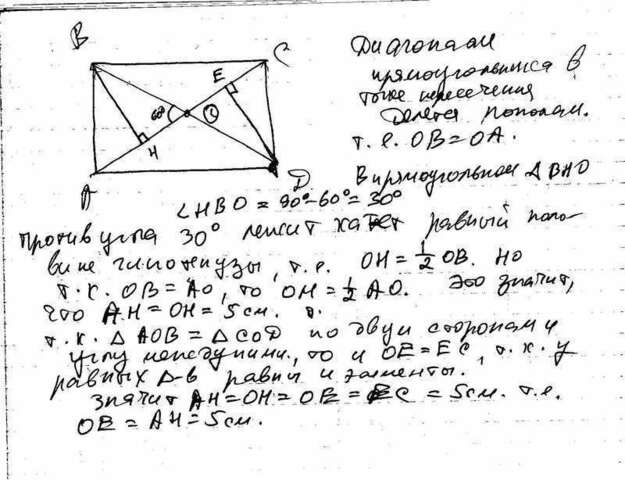 B
C
E
60°
O
H
A
D
Диагонали
прямоугольника в
точке пересечения
делятся пополам.
т.е. OB=OA.
В прямоугольном △ BHO
∠HBO = 90°-60°=30°
Против угла 30° лежит катет равный поло-
вине гипотенузы, т.е. OH=1/2 OB. Но
т.к. OB=AO, то OH=1/2 AO. Это значит,
что AH=OH=5см. т.
т.к. △ AOB = △ COD по двум сторонам и
углу между ними, то и OE=EC, т.к. у
равных △-в равны и элементы.
значит AH=OH=OE=EC=5см. т.е.
OE=AH=5см.